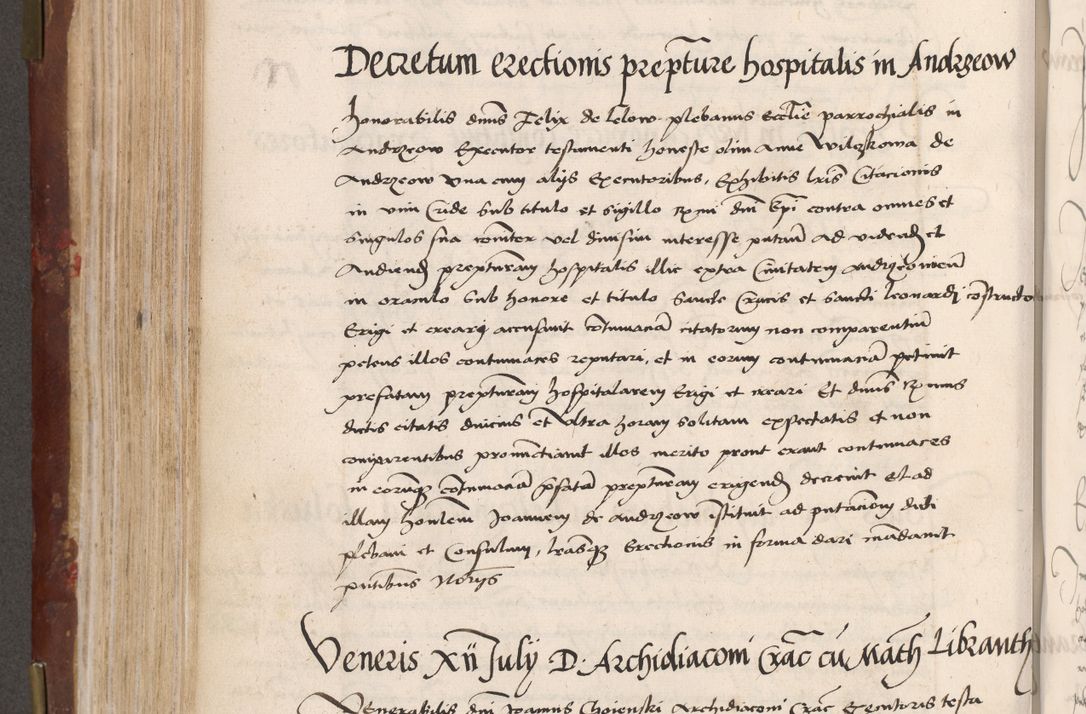 Decretum erectionis prepture hospitalis in Andrzeow
Honorabilis dnus Felix de Lelow plebanus Ecclie parrochialis in
Andrzeow Executor testamenti honeste olim Anne Wilczkowa de
Andrzeow una cum alijs Executoribus, Exhibitis lris Citacionis
in vim Cride sub titulo et sigillo Rmi dni Epi contra omnes et
singulos sua comiter vel divisim interesse putan ad vidend et
Audiend prepturam hospitalis illic extra Civitatem Andrzeovien
in oraculo sub honore et titulo Sancte Crucis et Sancti Leonardj constructo
Erigi et creari accusavit contumaciam citatorum non comparentium
petens illos contumaces reputari, et in eorum contumaciam petivit
prefatam prepturam hospitalarem Erigi et creari Et dnus Rmus
dictis citatis diucius et Ultra horam solitam expectatis et non
comparentibus pronunctiavit illos merito prout erant contumaces
in eorumque contumaciam prefatam prepturam erigend decrevit Et ad
illam honlem Joannem de Andrzeow istituit ad pntacionem dicti
plebani et Consulum, lrasque Erectionis in forma dari mandavit
pntibus Notariis
Veneris XII July D. Archidiaconi Crac cu Math Libranthy
Venerabilis dni Joannis Choienski Archidiaconi Crac Executoris testa